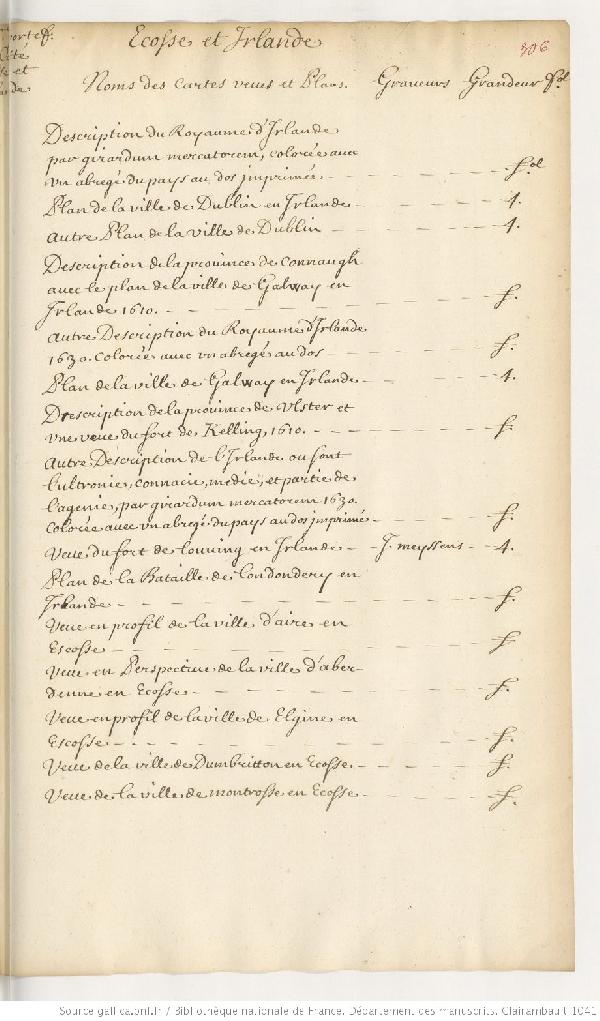 Portef.
Cité
et
de
Ecosse et Irlande
306
Noms des Cartes veues et Plans. Graveurs Grandeur fol
Description du Royaume d'Irlande
par girardum mercatorem, colorée avec
vn abregé du pays au dos jmprimée. fol
Plan de la ville de Dublin en Irlande 4.
autre Plan de la ville de Dublin 4.
Description de la prouince de connaugh
avec le plan de la ville de Galway en
Irlande 1610. f.
autre Description du Royaume d'Irlande
1630. Colorée avec vn abregé au dos f.
Plan de la ville de Galway en Irlande 4.
Drescription de la prouince de Vlster et
vne veue du fort de Kelling, 1610. f.
autre Description de l'Irlande ou sont
l'ultronie, connacie, medie, et partie de
lagenie, par girardum mercatorem 1630.
colorée avec vn abregé du pays au dos jmprimé f.
Veue du fort de louuing en Irlande J. meyssens 4.
Plan de la Bataille de londondery en
Irlande f.
Veue en profil de la ville d'aire en
Escosse f.
Veue en Perspective de la ville d'aber-
denne en Ecosse f.
Veue en profil de la ville de Elgine en
Escosse f.
Veue de la ville de Dumbritton en Ecosse f.
Veue de la ville de montrosse en Ecosse f.
Source gallica.bnf.fr / Bibliothèque nationale de France. Département des manuscrits. Clairambault 1041